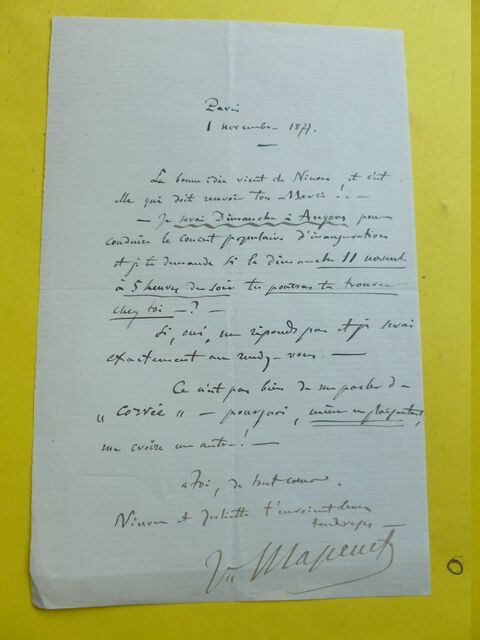 Paris
1 novembre 1877.
La bonne idée vient de Ninon et c'est
elle qui doit recevoir ton "Merci"! –
– Je serai Dimanche à Angers pour
conduire le concert populaire d'inauguration
et je te demande si le dimanche 11 novembre
à 5 heures du soir tu pourras te trouver
chez toi – ? –
Si, oui, ne réponds pas et je serai
exactement au rendez-vous. –
Ce n'est pas bien de me parler de
"corvée" – pourquoi, même en plaisantant,
me croire un autre! –
à Toi, de tout coeur.
Ninon et Juliette t'envoient leurs
tendresses –
J. Massenet